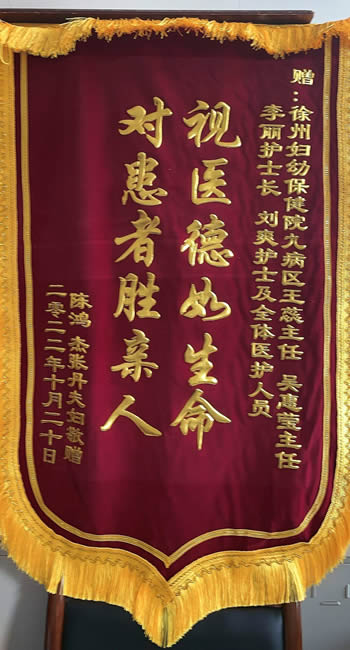 赠：徐州妇幼保健院九病区王蕊主任 吴惠莹主任
李丽护士长 刘爽护士及全体医护人员
视医德如生命
对患者胜亲人
陈鸿杰张丹夫妇敬赠
二零二二年十月二十日